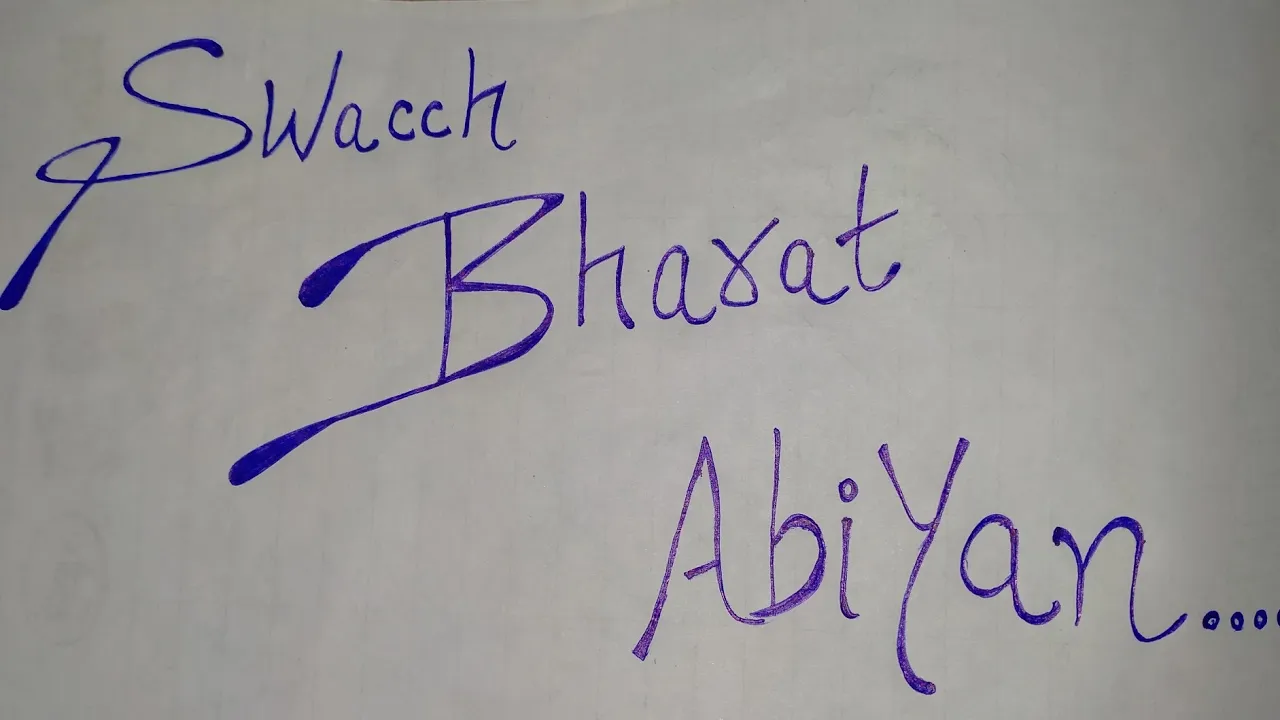 Swacch
Bharat
AbiYan....